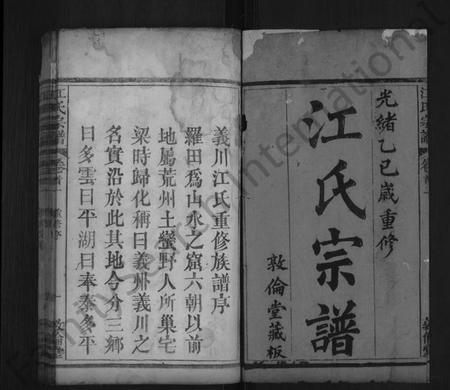 江氏宗譜
卷首
光緒乙巳歲重修
江氏宗譜
敦倫堂藏板
義川江氏重修族譜序
羅田爲山水之窟六朝以前
地屬荒州土蠻野人所巢宅
梁時歸化稱曰義州義川之
名實沿於此其地今分三鄉
曰多雲曰平湖曰奉泰多平
江氏宗譜
卷首
一
敦倫堂